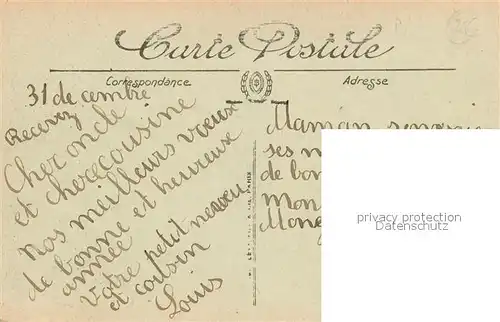 Carte Postale
Correspondance
Adresse
31 de cembre
Recevez
Cher oncle
et chere cousine
nos meilleurs voeux
de bonne et heureuse
année
Votre petit neveu
et cousin
Louis
Maman
ses
de bon
Mon
privacy protection